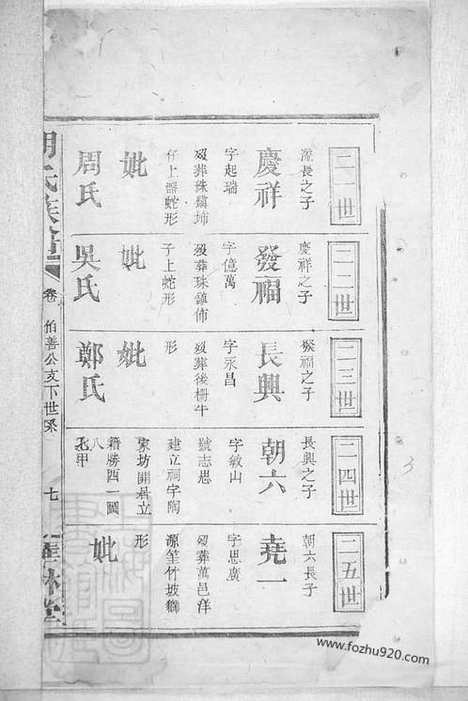 二一世
源長之子
慶祥
字起瑞
歿葬珠雞埔
仔上器蛇形
妣
周氏
二二世
慶祥之子
發福
字億萬
歿葬珠雞佈
子上蛇形
妣
吳氏
二三世
發福之子
長興
字永昌
歿葬後柵牛
形
妣
鄭氏
二四世
長興之子
朝六
字敏山
號志思
建立祠宇陶
家坊開居立
籍勝四一圖
八
甲
二五世
朝六長子
堯一
字思廣
歿葬萬邑洋
源筀竹坡獅
形
妣
氏族
卷
伯善公支下世系
七
堂
3
www.fozhu920.com